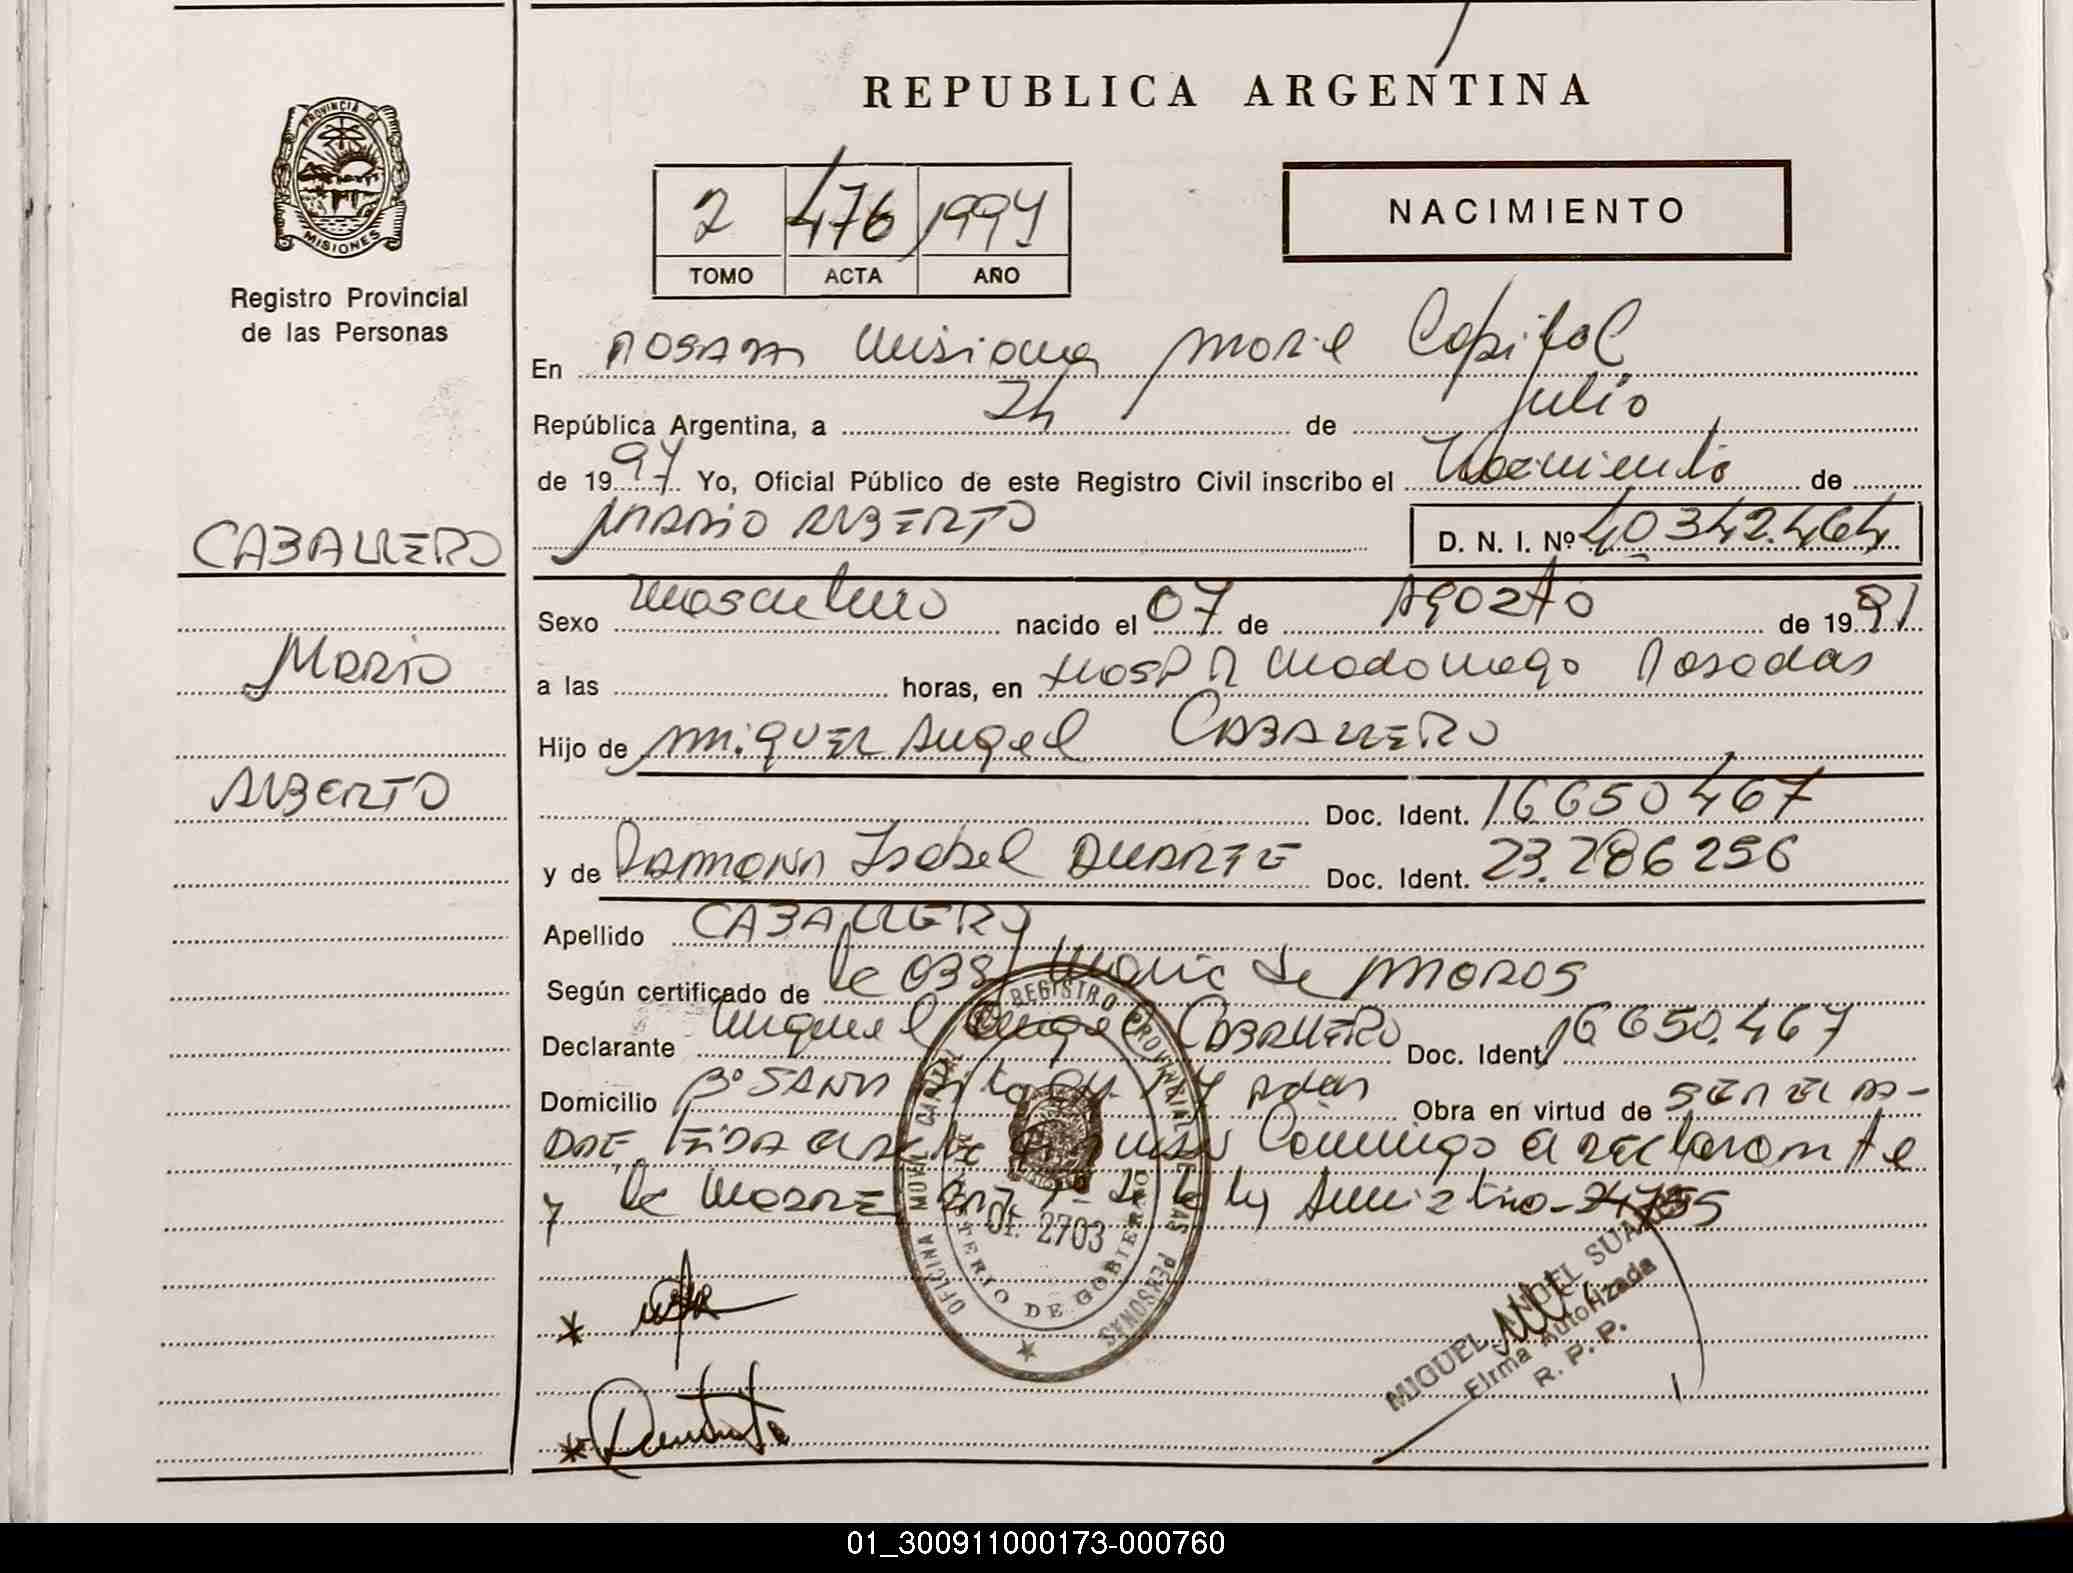 REPUBLICA ARGENTINA
PROVINCIA DE
MISIONES
Registro Provincial
de las Personas
2 476 1997
TOMO ACTA AÑO
NACIMIENTO
En Misiones Movil Capital
República Argentina, a 24 de Julio
de 1997 Yo, Oficial Público de este Registro Civil inscribo el Nacimiento de
MARIO ALBERTO D. N. I. Nº 40342.464
CABALLERO
Sexo Masculino nacido el 07 de Agozto de 1991
Mario
a las horas, en Hosp R Madariaga Posadas
Hijo de MIGUEL Angel CABALLERO
ALBERTO
Doc. Ident. 16650467
y de RAMONA Isabel DUARTE Doc. Ident. 23.286256
Apellido CABALLERO
Según certificado de
Declarante Miguel Angel CABALLERO Doc. Ident. 16650.467
Domicilio Bº SANTA Rita Obra en virtud de SER EL PA-
DRE LEIDA EL ACTA Conmigo el declarante
y la MADRE
REGISTRO PROVINCIAL DE LAS PERSONAS
OFICINA MOVIL CAPITAL
MINISTERIO DE GOBIERNO
Of. 2703
MIGUEL ANGEL
Firma Autorizada
R. P. P.
01_300911000173-000760